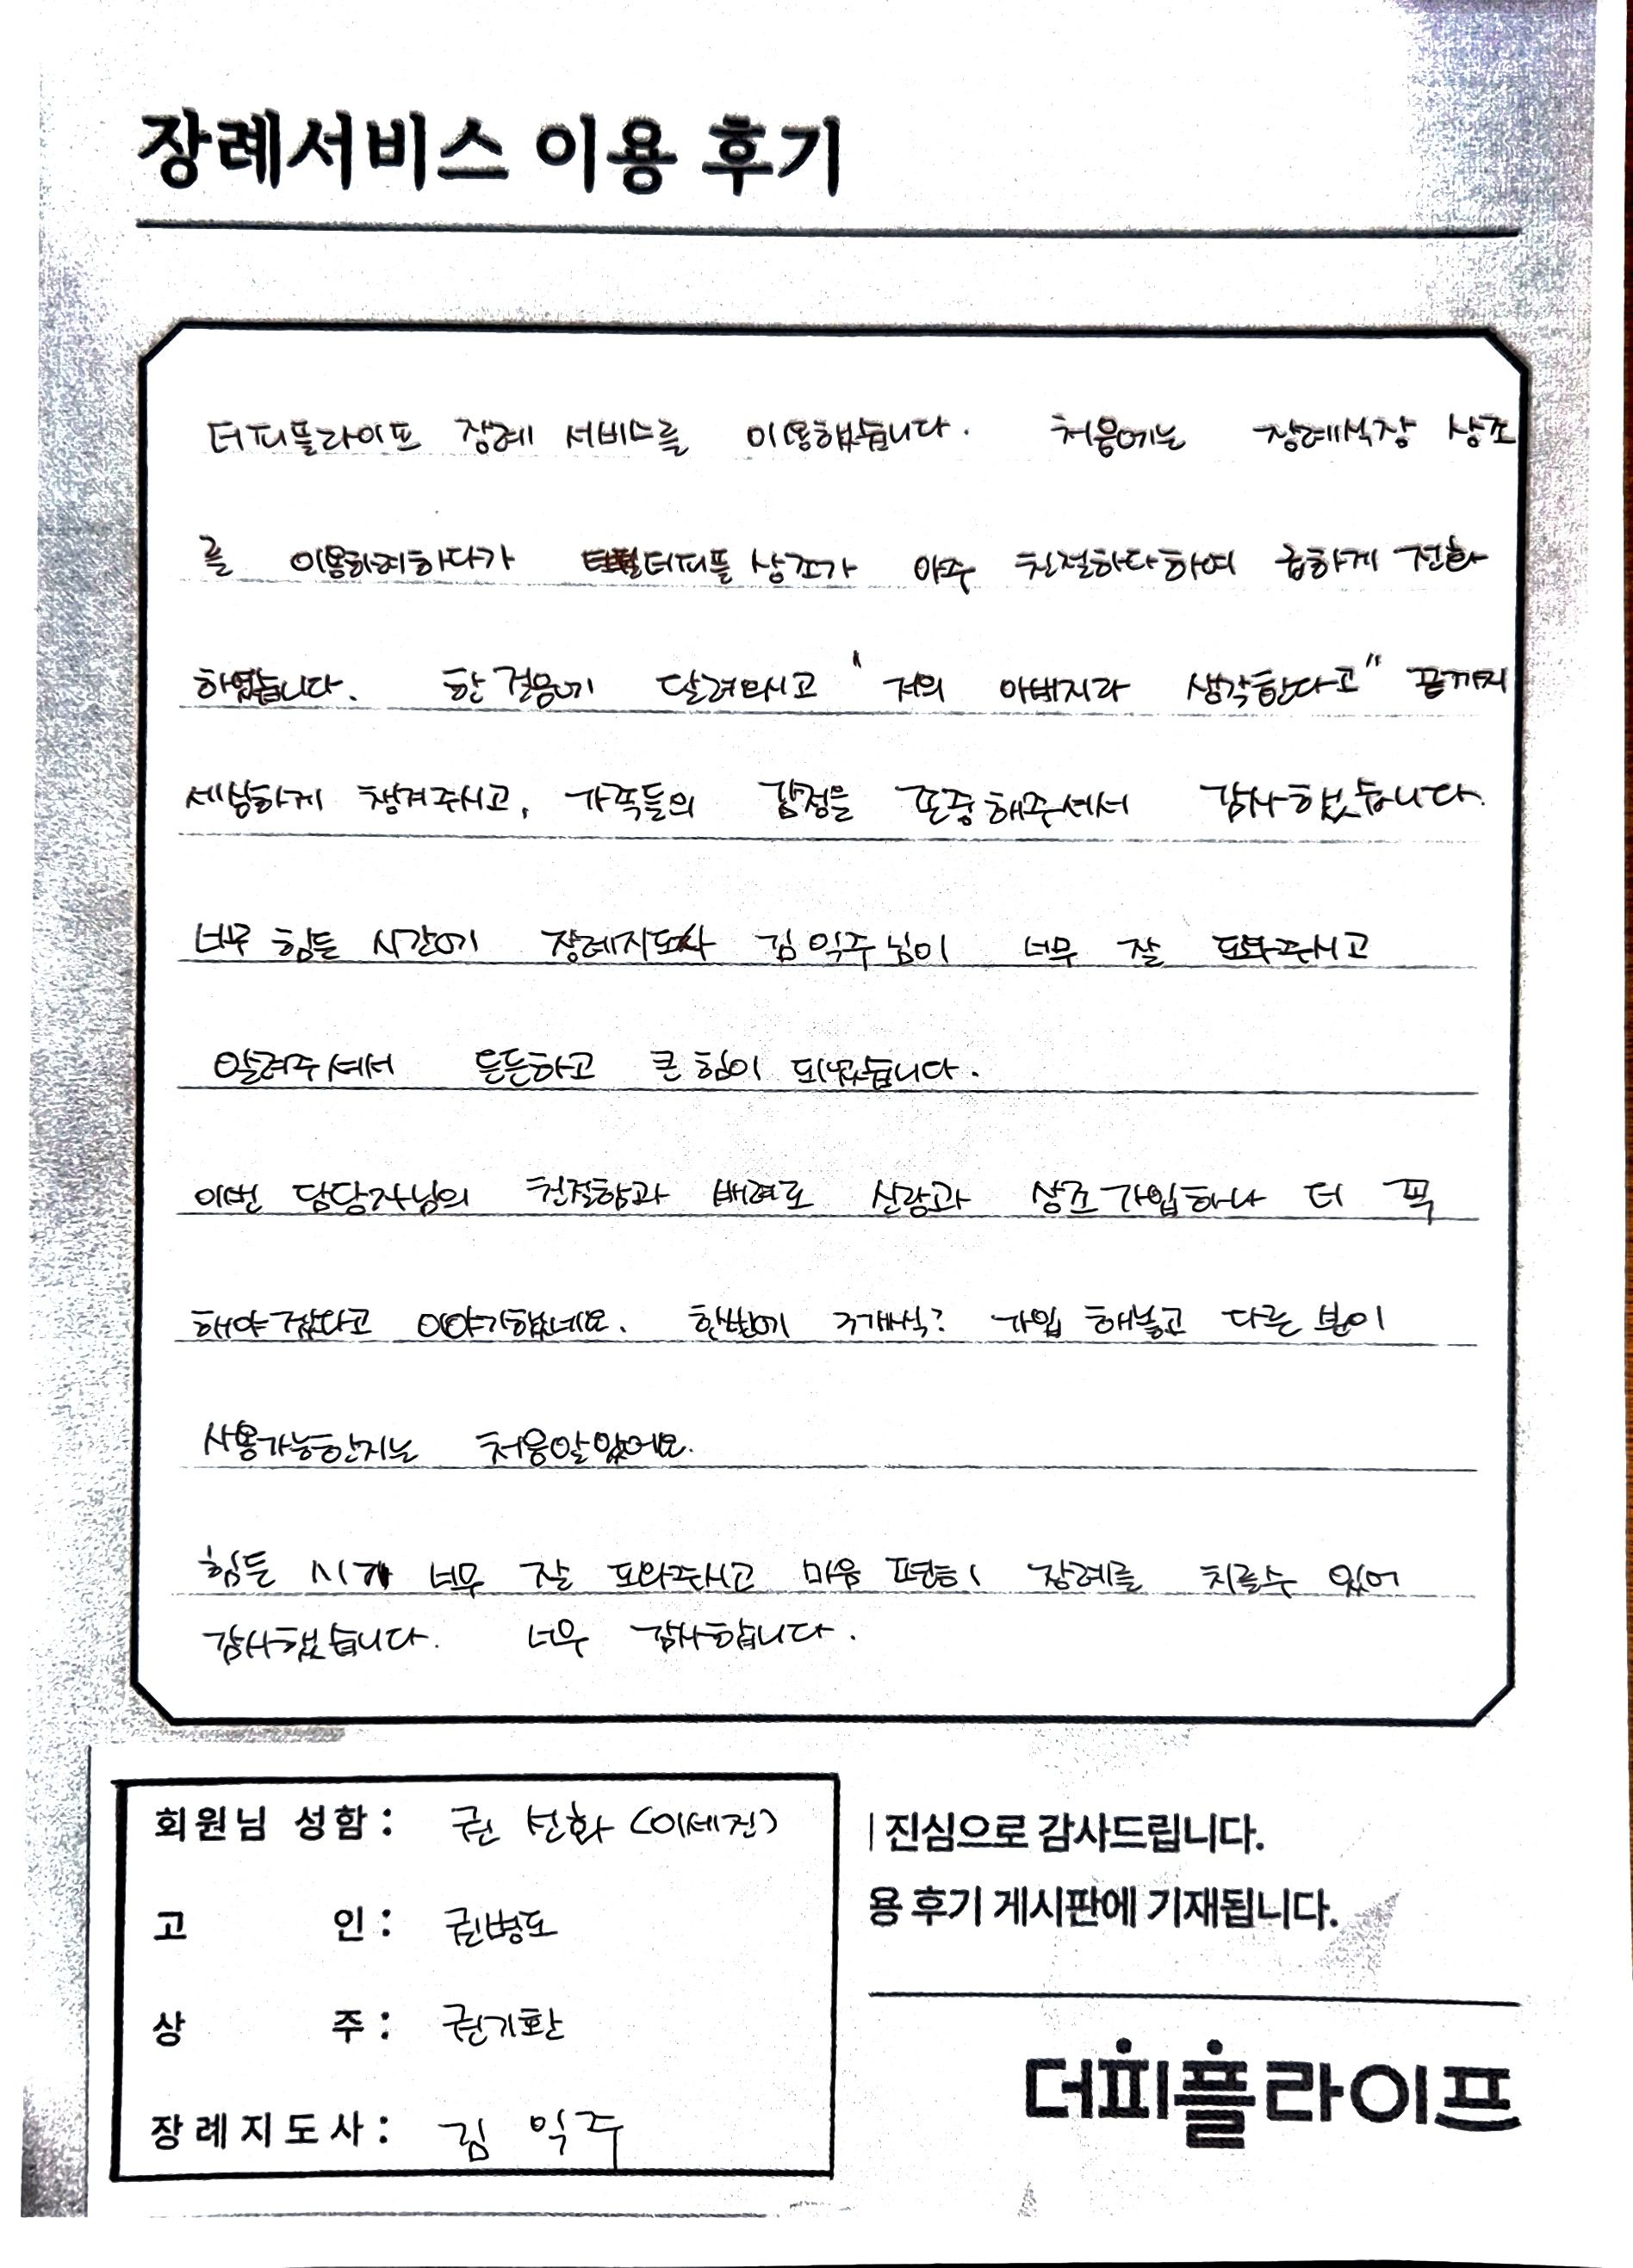 장례서비스 이용 후기
더피플라이프 장례 서비스를 이용했습니다. 처음에는 장례식장 상조
를 이용하려하다가 더피플 상조가 아주 친절하다하여 급하게 전화
하였습니다. 한걸음에 달려오시고 "저의 아버지라 생각한다고" 끝까지
세심하게 챙겨주시고, 가족들의 감정을 존중해주셔서 감사했습니다.
너무 힘든 시간에 장례지도사 김익주님이 너무 잘 도와주시고
알려주셔서 든든하고 큰 힘이 되었습니다.
이번 담당자님의 친절함과 배려로 신랑과 상조가입하나 더 꼭
해야겠다고 이야기했네요. 한번에 3개씩? 가입 해놓고 다른 분이
사용가능한지는 처음알았어요.
힘든 시기 너무 잘 도와주시고 마음 편히 장례를 치를수 있어
감사했습니다. 너무 감사합니다.
회원님 성함: 권 선화 (이세진)
고 인: 권병도
상 주: 권기환
장례지도사: 김 익주
진심으로 감사드립니다.
용 후기 게시판에 기재됩니다.
더피플라이프